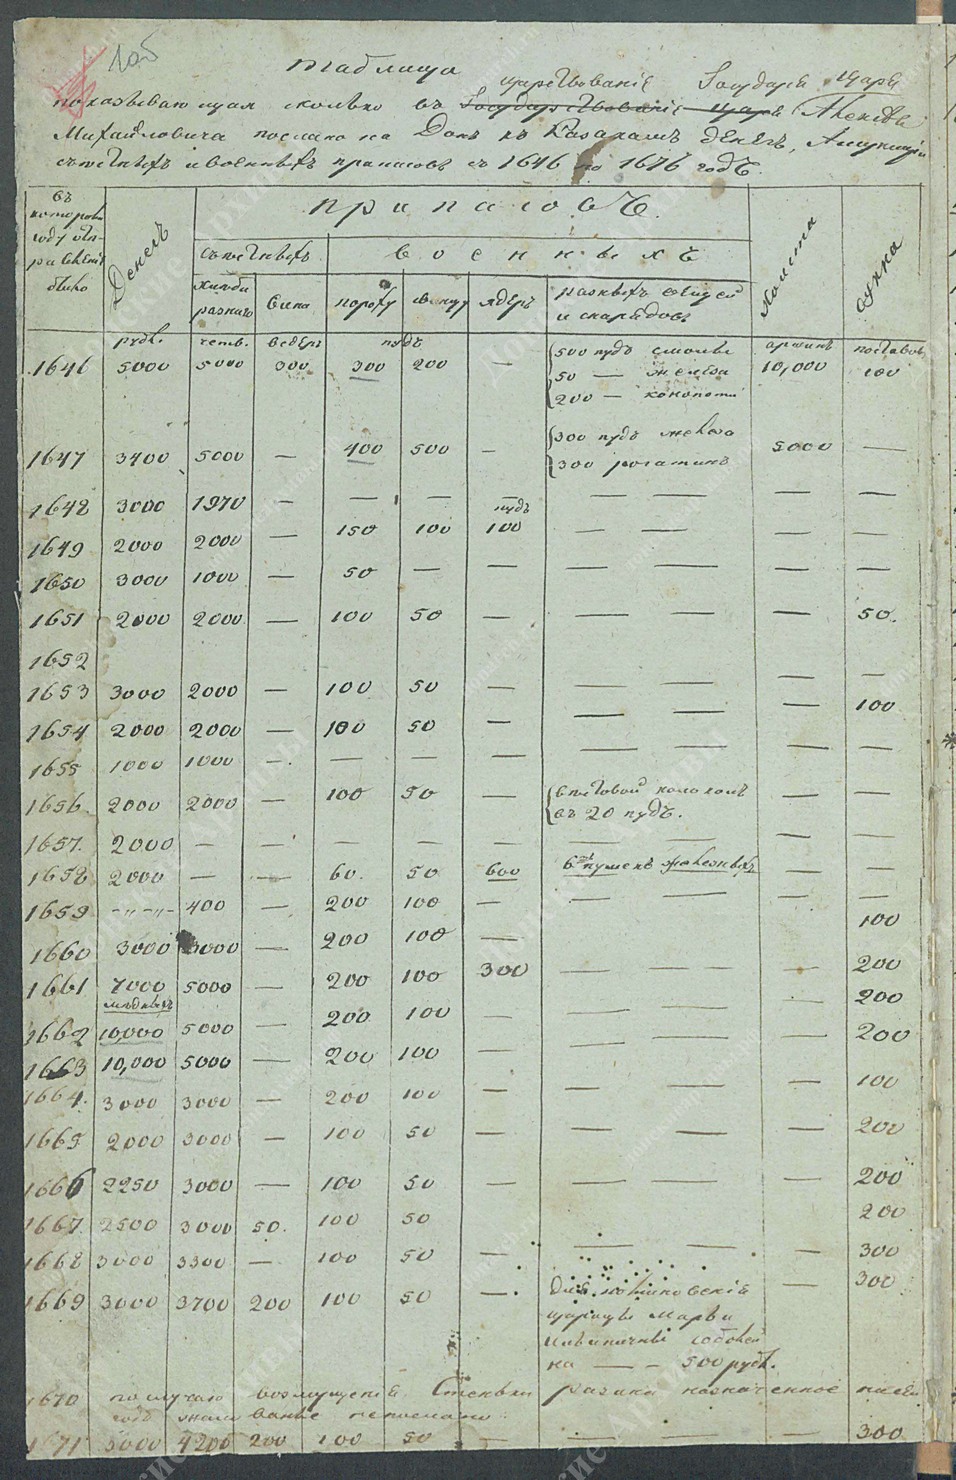 105
Таблица
царствованіе Государя Царя
показывающая сколько въ Государствованіе Царя Алексея
Михайловича послано на Донъ къ Казакамъ денегъ, Амуниціи
съестныхъ и военныхъ припасовъ съ 1646 по 1676 годъ.
въ которомъ году отправленіе было | Денегъ | припасовъ | холста | сукна
съестныхъ | военныхъ
хлеба разнаго | вина | пороху | свинцу | ядеръ | разныхъ вещей и снарядовъ
рубл. | четв. | ведеръ | пудъ | аршинъ | поставовъ
1646 | 5000 | 5000 | 300 | 300 | 200 | — | 500 пудъ смолы | 10,000 | 100
50 — железа
200 — конопати
1647 | 3400 | 5000 | — | 400 | 500 | — | 300 пудъ железа | 5000 | —
300 рогатинъ
1648 | 3000 | 1970 | — | — | — | — | — — | — | —
пудъ
1649 | 2000 | 2000 | — | 150 | 100 | 100 | — — | — | —
1650 | 3000 | 1000 | — | 50 | — | — | — — | — | —
1651 | 2000 | 2000 | — | 100 | 50 | — | — — | — | 50.
1652
1653 | 3000 | 2000 | — | 100 | 50 | — | — — | — | —
100
1654 | 2000 | 2000 | — | 100 | 50 | — | — — | —
1655 | 1000 | 1000 | — | — | — | — | — — | — | —
1656 | 2000 | 2000 | — | 100 | 50 | — | вестовой колоколъ | — | —
въ 20 пудъ.
1657. | 2000 | — | — | — | — | — | — — | — | —
1658 | 2000 | — | — | 60. | 50 | 600 | 6 пушекъ железныхъ | — | —
1659 | -„-„- | 400 | — | 200 | 100 | — | — — | — | —
100
1660 | 3000 | 3000 | — | 200 | 100 | —
1661 | 7000 | 5000 | — | 200 | 100 | 300 | — — — | — | 200
медныхъ
1662 | 10,000 | 5000 | — | 200 | 100 | — | — — | — | 200
1663 | 10,000 | 5000 | — | 200 | 100 | — | — — | — | 200
1664. | 3000 | 3000 | — | 200 | 100 | — | — — | — | 100
1665 | 2000 | 3000 | — | 100 | 50 | — | — — | — | 200
1666 | 2250 | 3000 | — | 100 | 50 | — | — — | — | 200
1667. | 2500 | 3000 | 50. | 100 | 50 | 200
1668 | 3000 | 3300 | — | 100 | 50 | — | — — | — | 300
1669 | 3000 | 3700 | 200 | 100 | 50 | — | для поминовенія | — | 300
царицы Марьи
Ильиничны собственно
на — 500 рубл.
1670 по случаю возмущенія Стеньки Разина назначенное
годъ жалованье непослано
1671 | 5000 | 4200 | 200 | 100 | 50 | — | — — | — | 300